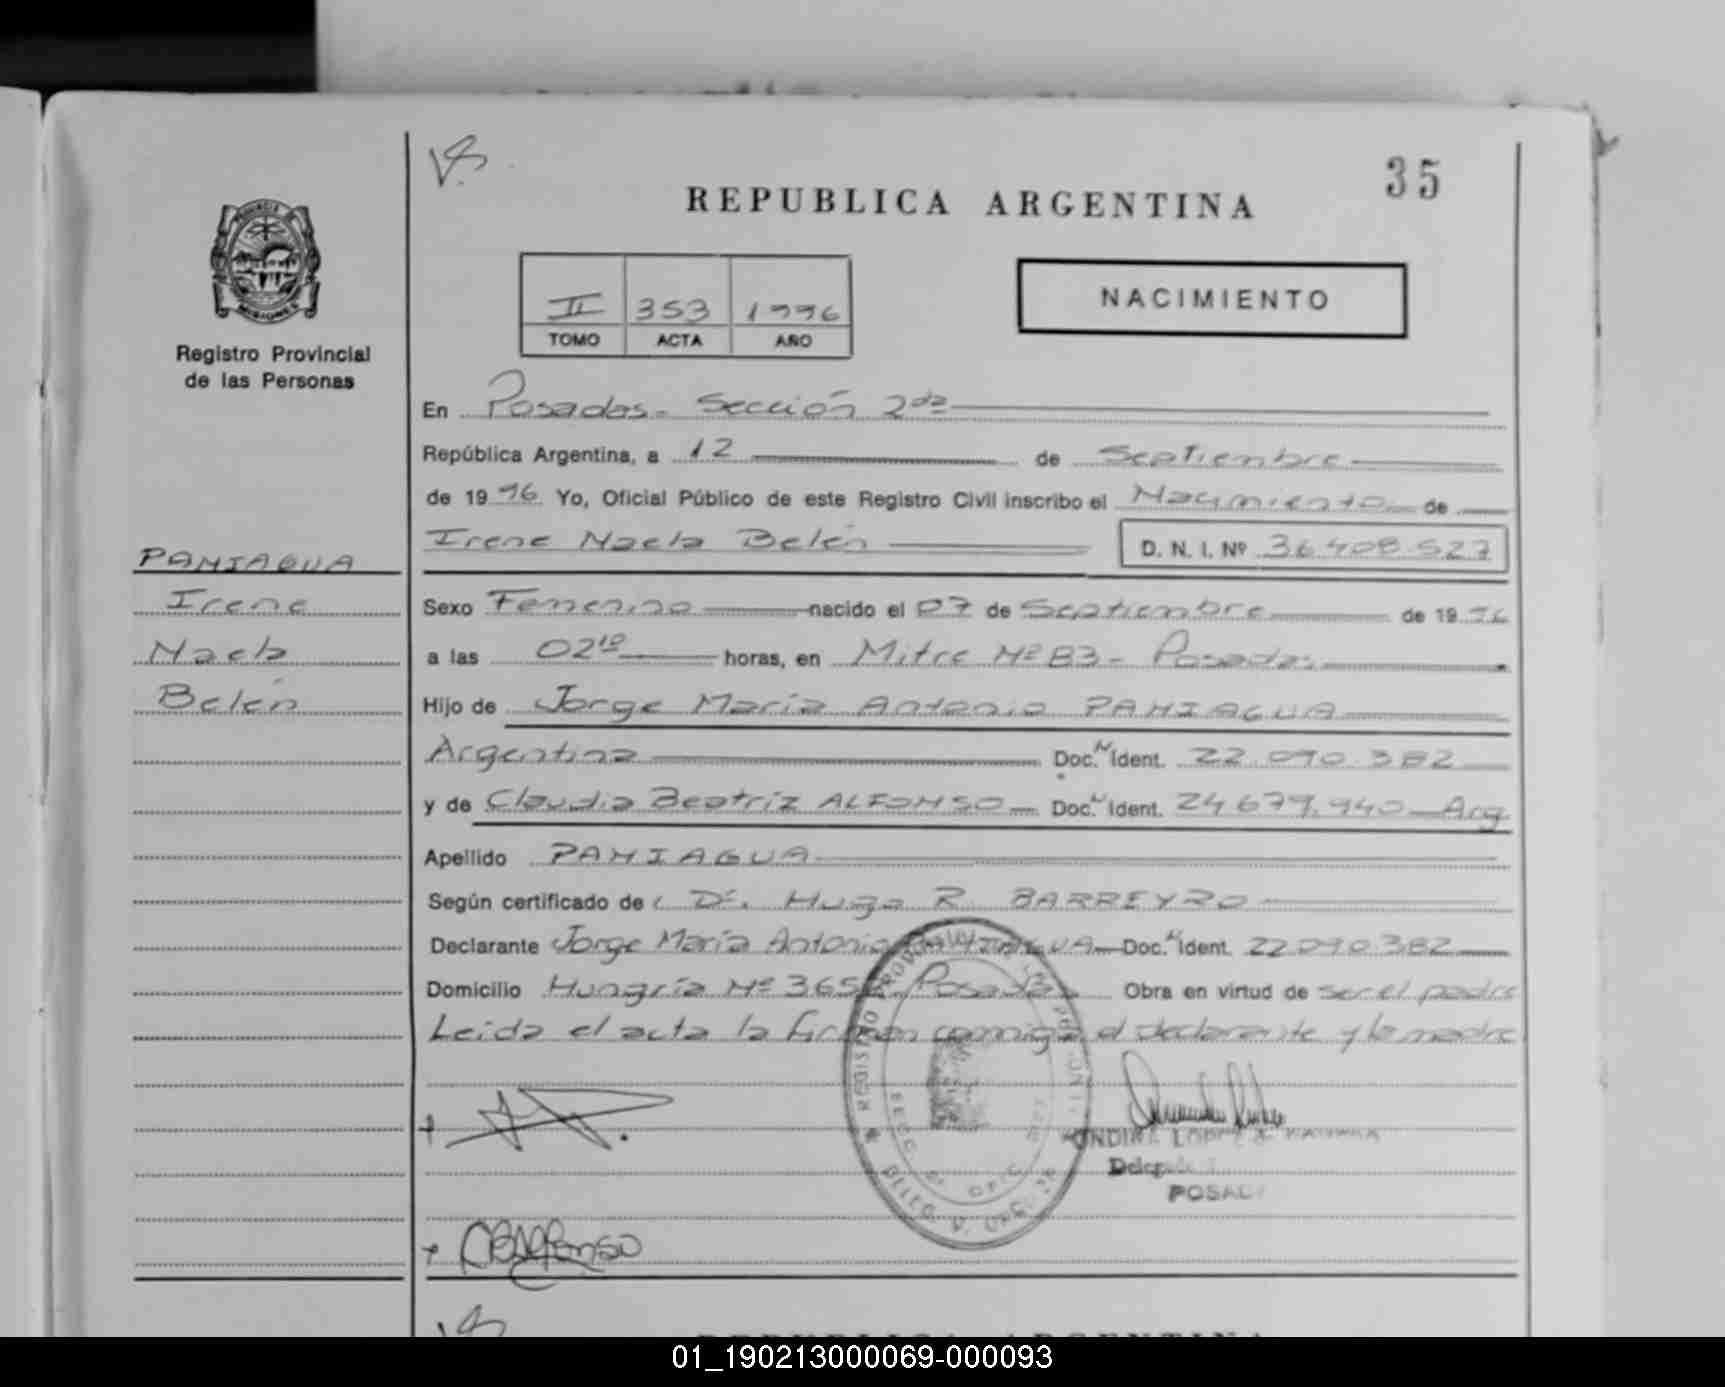 35
REPUBLICA ARGENTINA
II 353 1996
TOMO ACTA AÑO
NACIMIENTO
MISIONES
Registro Provincial
de las Personas
PANIAGUA
Irene
Naela
Belén
En Posadas - Sección 2da
República Argentina, a 12 de Septiembre
de 1996 Yo, Oficial Público de este Registro Civil inscribo el Nacimiento de
Irene Naela Belén D. N. I. Nº 36.408.527
Sexo Femenino nacido el 07 de Septiembre de 1996
a las 02 10 horas, en Mitre Nº 83 - Posadas
Hijo de Jorge María Antonio PANIAGUA
Argentina Doc. N Ident. 22.090.382
y de Claudia Beatríz ALFONSO Doc. N Ident. 24.679.940 Arg
Apellido PANIAGUA
Según certificado de Dr. Hugo R. BARREYRO
Declarante Jorge María Antonio PANIAGUA Doc. N Ident. 22.090.382
Domicilio Hungría Nº 365 Posadas Obra en virtud de ser el padre
Leida el acta la firman conmigo el declarante y la madre
REGISTRO PROVINCIAL
LOPEZ
POSAD
CBAlfonso
REPUBLICA ARGENTINA
01_190213000069-000093